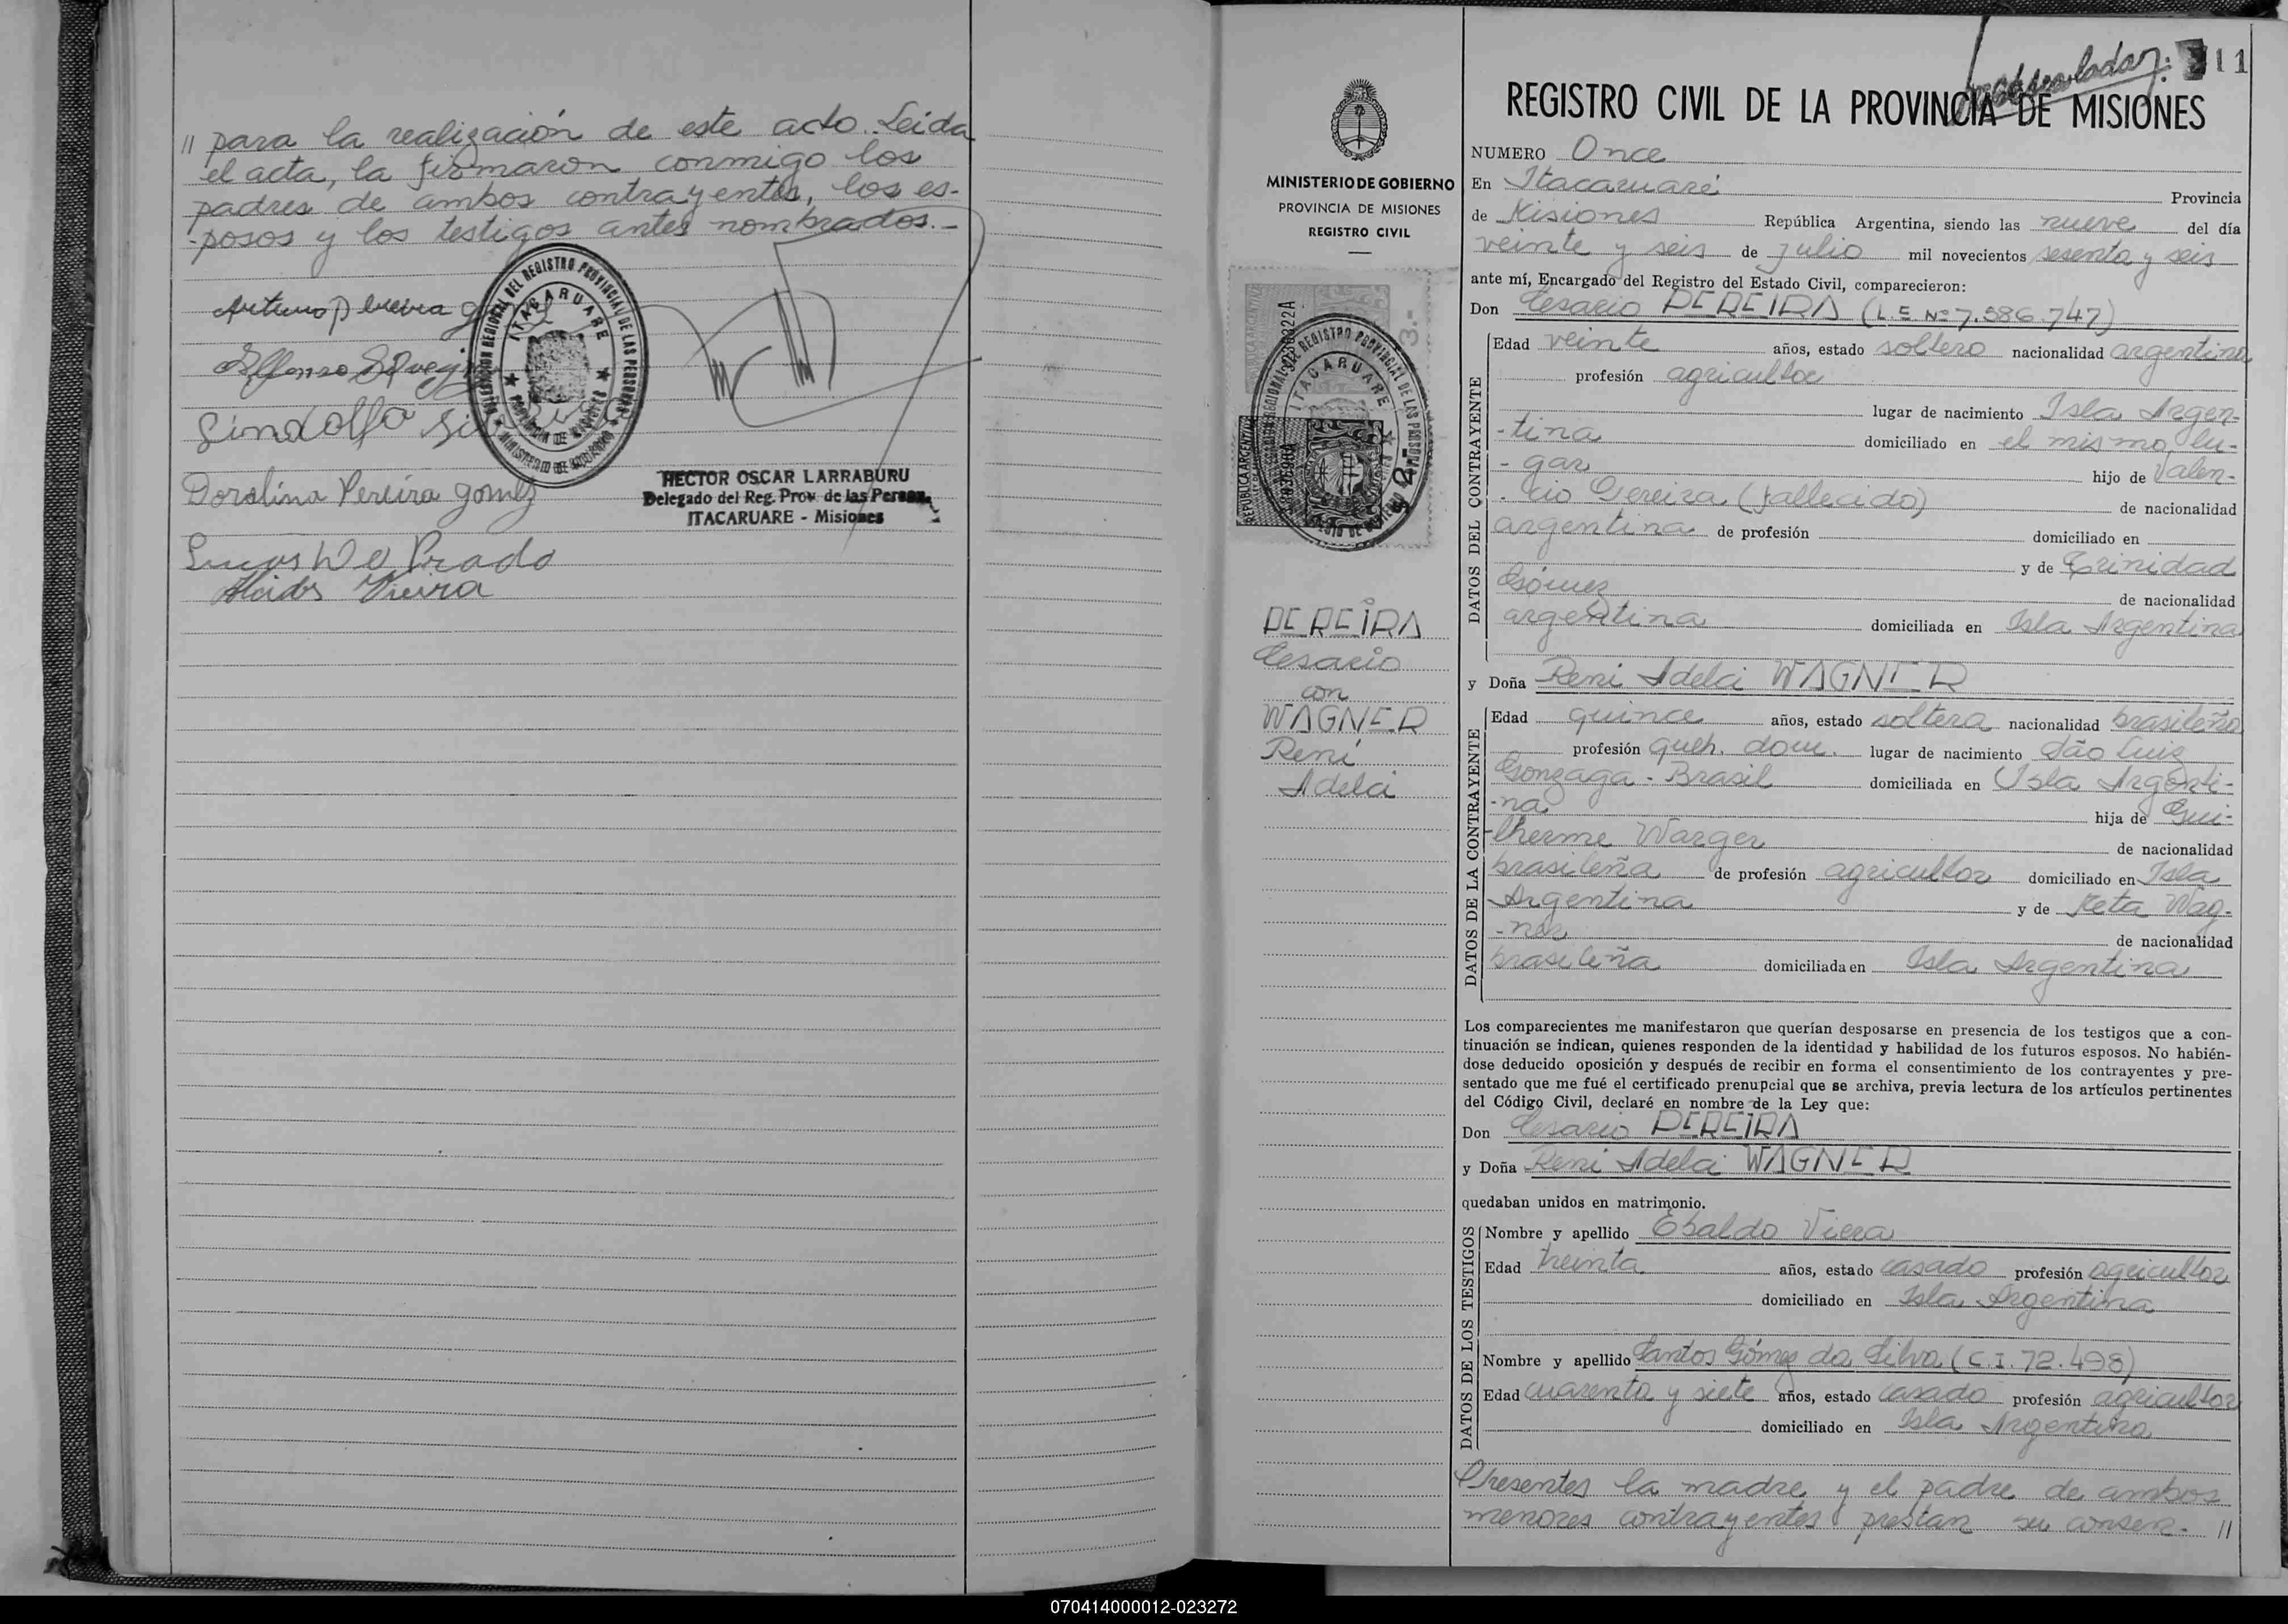 // para la realización de este acto. Leida
el acta, la firmaron conmigo los
padres de ambos contrayentes, los es-
-posos y los testigos antes nombrados.-
DELEGACION REGIONAL DEL REGISTRO PROVINCIAL DE LAS PERSONAS
ITACARUARE
PROVINCIA DE MISIONES
MINISTERIO DE GOBIERNO
Gindolfo
Doralina Pereira gomez
HECTOR OSCAR LARRABURU
Delegado del Reg. Prov. de las Person.
ITACARUARE - Misiones
Prado
Alcides Vieira
MINISTERIO DE GOBIERNO
PROVINCIA DE MISIONES
REGISTRO CIVIL
REPUBLICA ARGENTINA
ITACARUARE
PEREIRA
Cesario
con
WAGNER
Reni
Adelci
11
REGISTRO CIVIL DE LA PROVINCIA DE MISIONES
NUMERO Once
En Itacaruaré Provincia
de Misiones República Argentina, siendo las nueve del día
veinte y seis de julio mil novecientos sesenta y seis
ante mí, Encargado del Registro del Estado Civil, comparecieron:
Don Cesario PEREIRA (L.E Nº 7.586.747)
DATOS DEL CONTRAYENTE
Edad veinte años, estado soltero nacionalidad argentina
profesión agricultor
lugar de nacimiento Isla Argen-
-tina domiciliado en el mismo lu-
-gar hijo de Valen-
-cio Pereira (fallecido) de nacionalidad
argentina de profesión domiciliado en
y de Trinidad
Gómez de nacionalidad
argentina domiciliada en Isla Argentina
y Doña Reni Adelci WAGNER
DATOS DE LA CONTRAYENTE
Edad quince años, estado soltera nacionalidad brasileña
profesión queh. dom. lugar de nacimiento São Luiz
Gonzaga - Brasil domiciliada en Isla Argenti-
-na hija de Gui-
-lherme Warger de nacionalidad
brasileña de profesión agricultor domiciliado en Isla
Argentina y de Meta Wag-
-ner de nacionalidad
brasileña domiciliada en Isla Argentina
Los comparecientes me manifestaron que querían desposarse en presencia de los testigos que a con-
tinuación se indican, quienes responden de la identidad y habilidad de los futuros esposos. No habién-
dose deducido oposición y después de recibir en forma el consentimiento de los contrayentes y pre-
sentado que me fué el certificado prenupcial que se archiva, previa lectura de los artículos pertinentes
del Código Civil, declaré en nombre de la Ley que:
Don Cesario PEREIRA
y Doña Reni Adelci WAGNER
quedaban unidos en matrimonio.
DATOS DE LOS TESTIGOS
Nombre y apellido Ebaldo Viera
Edad treinta años, estado casado profesión agricultor
domiciliado en Isla Argentina
Nombre y apellido Santos Gómez da Silva (C.I. 72.498)
Edad cuarenta y siete años, estado casado profesión agricultor
domiciliado en Isla Argentina
Presentes la madre y el padre de ambos
menores contrayentes prestan su consen- //
070414000012-023272